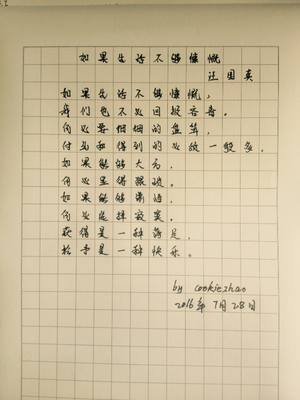 如果生活不够慷慨
汪国真
如果生活不够慷慨,
我们也不必回报吝啬。
何必要细细的盘算,
付出和得到的必须一般多。
如果能够大方,
何必显得猥琐。
如果能够潇洒,
何必选择寂寞。
获得是一种满足,
给予是一种快乐。
by cookiezhao
2016年7月28日